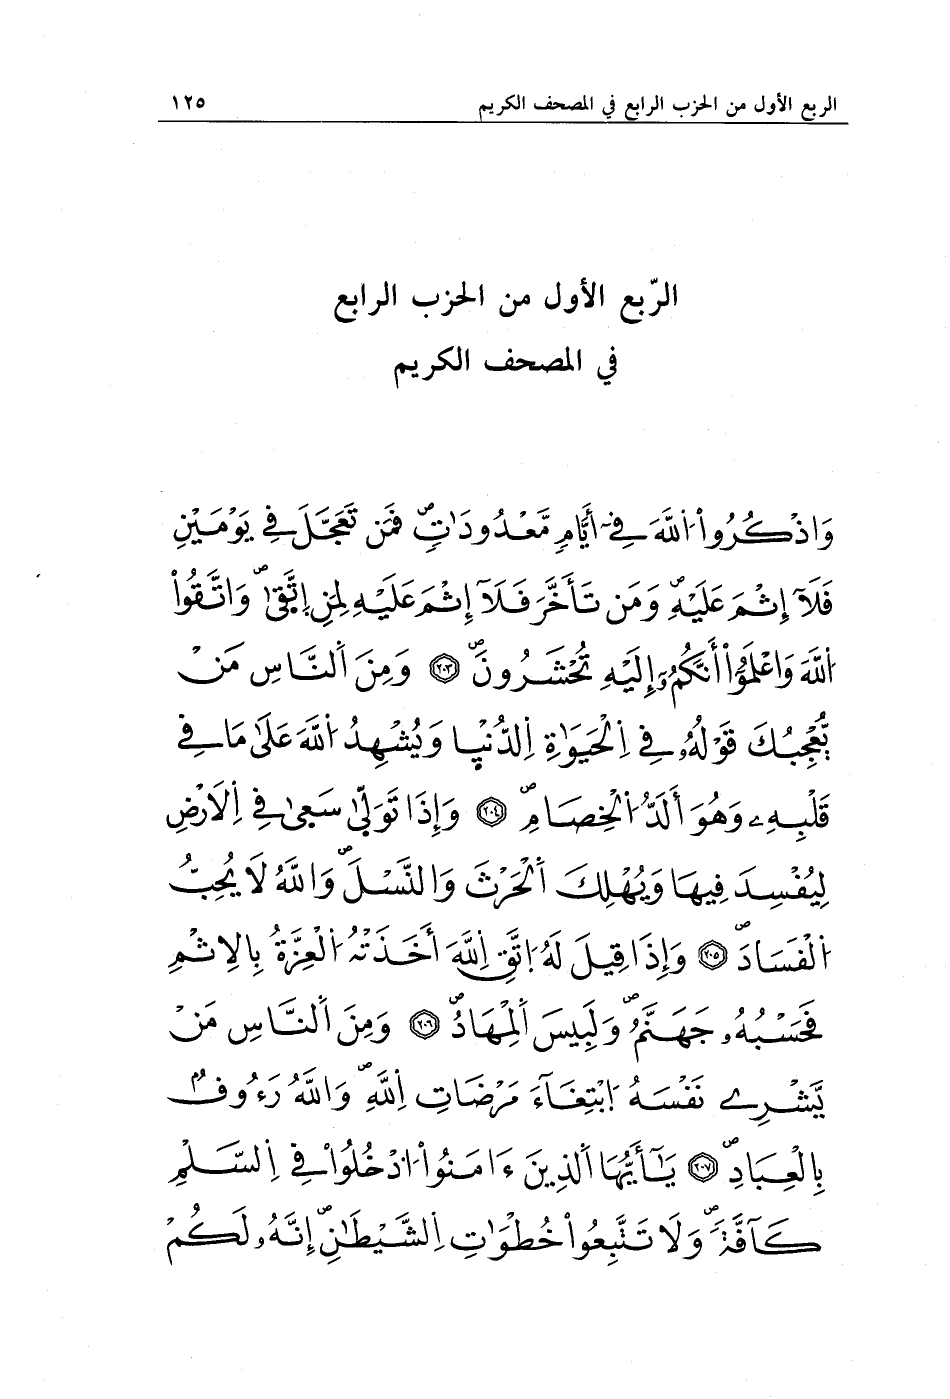 الربع الأول من الحزب الرابع في المصحف الكريم ١٢٥
الرّبع الأول من الحزب الرابع
في المصحف الكريم
وَاذْكُرُواْ اُللَّهَ فِےٓ أَيَّامٖ مَّعْدُودَٰتٖۖ فَمَن تَعَجَّلَ فِے يَوْمَيْنِ
فَلَآ إِثْمَ عَلَيْهِۖ وَمَن تَأَخَّرَ فَلَآ إِثْمَ عَلَيْهِ لِمَنِ اِتَّقَىٰۖ وَاتَّقُواْ
اُللَّهَ وَاعْلَمُوٓاْ أَنَّكُمُۥٓ إِلَيْهِ تُحْشَرُونَۖ ٢٠٣ وَمِنَ اَلنَّاسِ مَنْ
يُّعْجِبُكَ قَوْلُهُۥ فِے اِلْحَيَوٰةِ اِلدُّنْيٜا وَيُشْهِدُ اُللَّهَ عَلَىٰ مَا فِے
قَلْبِهِۦ وَهُوَ أَلَدُّ اُلْخِصَامِۖ ٢٠٤ وَإِذَا تَوَلَّىٰ سَعَىٰ فِے اِلَارْضِ
لِيُفْسِدَ فِيهَا وَيُهْلِكَ اَلْحَرْثَ وَالنَّسْلَۖ وَاللَّهُ لَا يُحِبُّ
اُلْفَسَادَۖ ٢٠٥ وَإِذَا قِيلَ لَهُ اُتَّقِ اِللَّهَ أَخَذَتْهُ اُلْعِزَّةُ بِالِاثْمِ
فَحَسْبُهُۥ جَهَنَّمُۖ وَلَبِيسَ اَلْمِهَادُۖ ٢٠٦ وَمِنَ اَلنَّاسِ مَنْ
يَّشْرِے نَفْسَهُ اُبْتِغَآءَ مَرْضَاتِ اِللَّهِۖ وَاللَّهُ رَءُوفُۢ
بِالْعِبَادِۖ ٢٠٧ يَٰٓأَيُّهَا اَلذِينَ ءَامَنُواْ اُدْخُلُواْ فِے اِلسَّلْمِ
كَآفَّةٗۖ وَلَا تَتَّبِعُواْ خُطْوَٰتِ اِلشَّيْطَٰنِۖ إِنَّهُۥ لَكُمْ